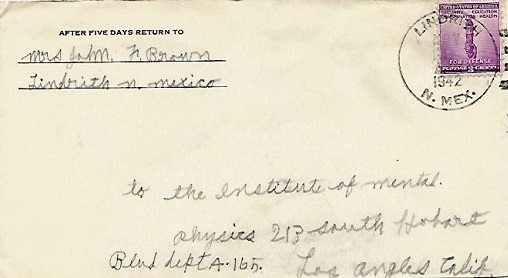 AFTER FIVE DAYS RETURN TO
Mrs John F. Brown
Lindrith n. mexico
LINDRITH
1942
N. MEX.
UNITED STATES OF AMERICA
SECURITY EDUCATION
HEALTH
FOR DEFENSE
3 CENTS
to the Institute of mental
physics 213 South Hobart
Blvd dept A-165. Los angles Calif.